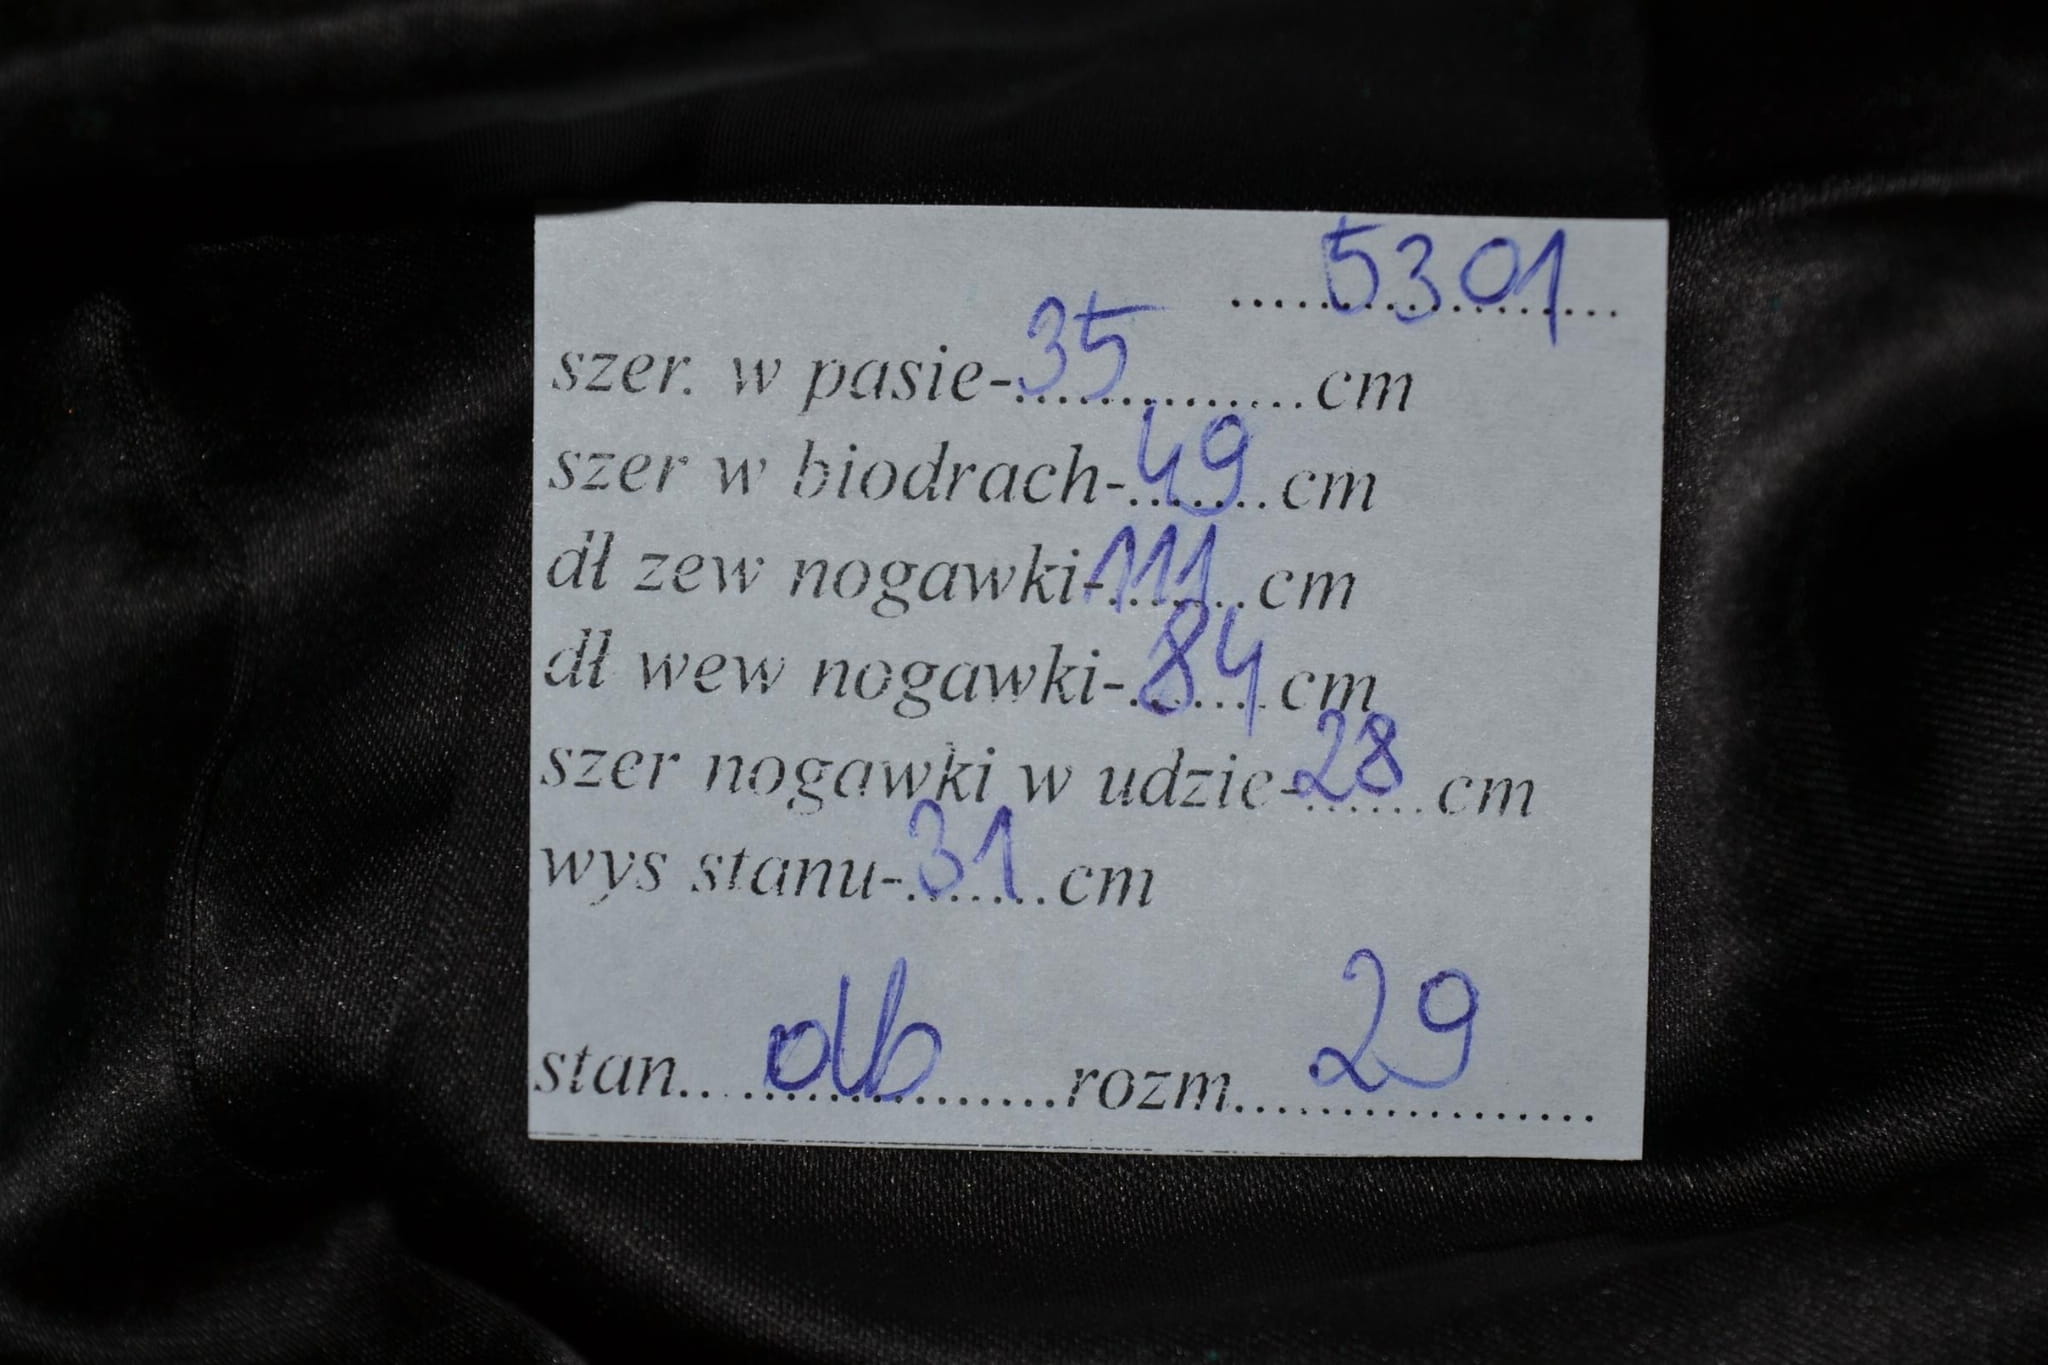 ....5301....
szer. w pasie-35......cm
szer w biodrach-49...cm
dł zew nogawki-111...cm
dł wew nogawki-84...cm
szer nogawki w udzie-28...cm
wys stanu-31...cm
stan....db......rozm....29......